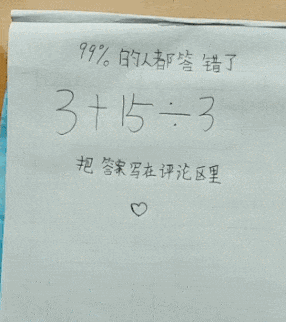 99%的人都答错了
3+15÷3
把答案写在评论区里
♡